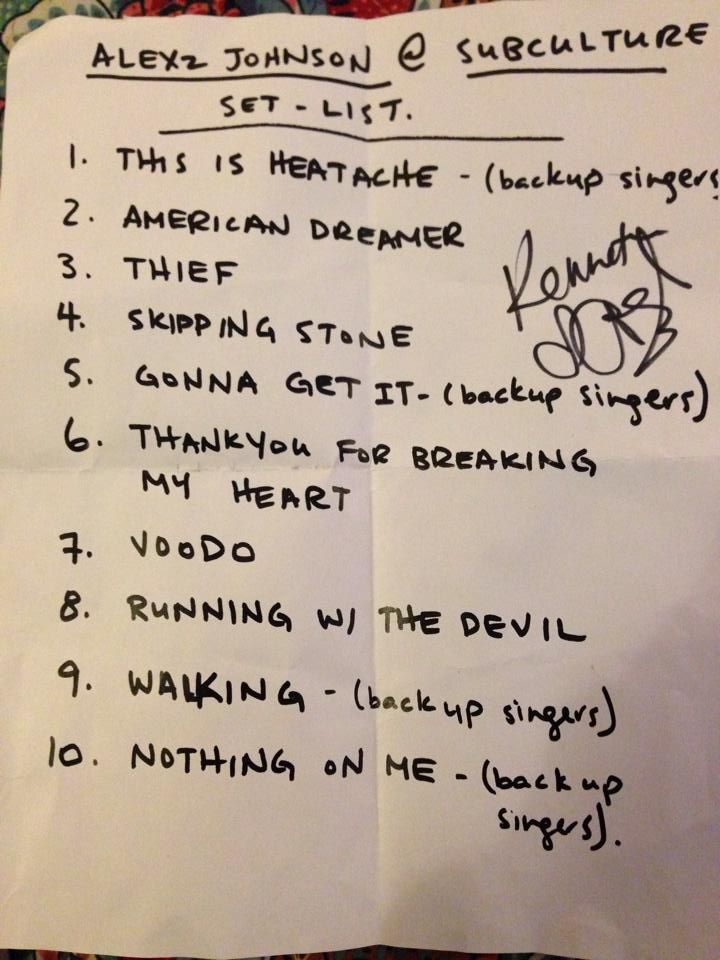 ALEXZ JOHNSON @ SUBCULTURE
SET - LIST.
1. THIS IS HEATACHE - (backup singers
2. AMERICAN DREAMER
3. THIEF
4. SKIPPING STONE
5. GONNA GET IT - (backup singers)
6. THANKYOU FOR BREAKING
MY HEART
7. VOODO
8. RUNNING W/ THE DEVIL
9. WALKING - (back up singers)
10. NOTHING ON ME - (back up
singers).